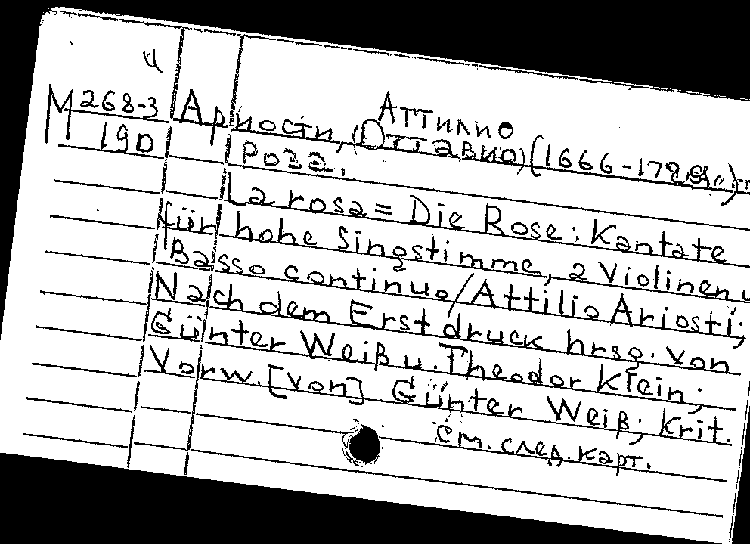 и
Аттилио
М 268-3 Ариости, (Оттавио) (1666-
190 Роза.
La rosa = Die Rose: Kantate
für hohe Singstimme, 2 Violinen u
Basso continuo/Attilio Ariosti;
Nach dem Erstdruck hrsg. von
Günter Weiß u. Theodor Klein;
Vorw. [von] Günter Weiß; Krit.
см. след. карт.